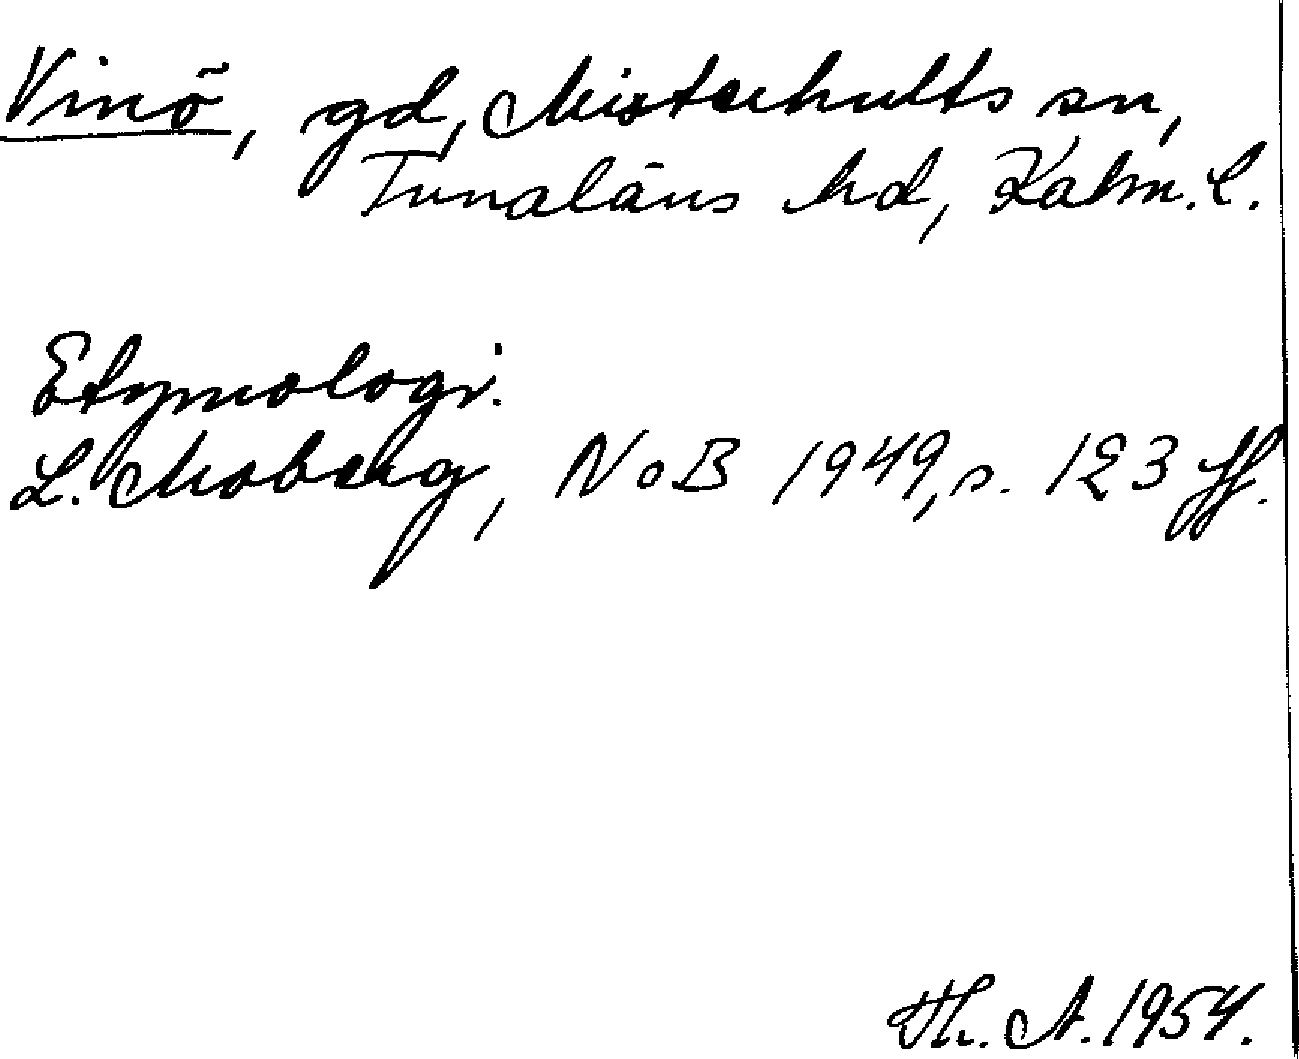 Vinö, gd, Misterhults sn,
Tunaläns hd, Kalm. l.
Etymologi.
L. Moberg, NoB 1949, s. 123 ff.
Th. A. 1954.